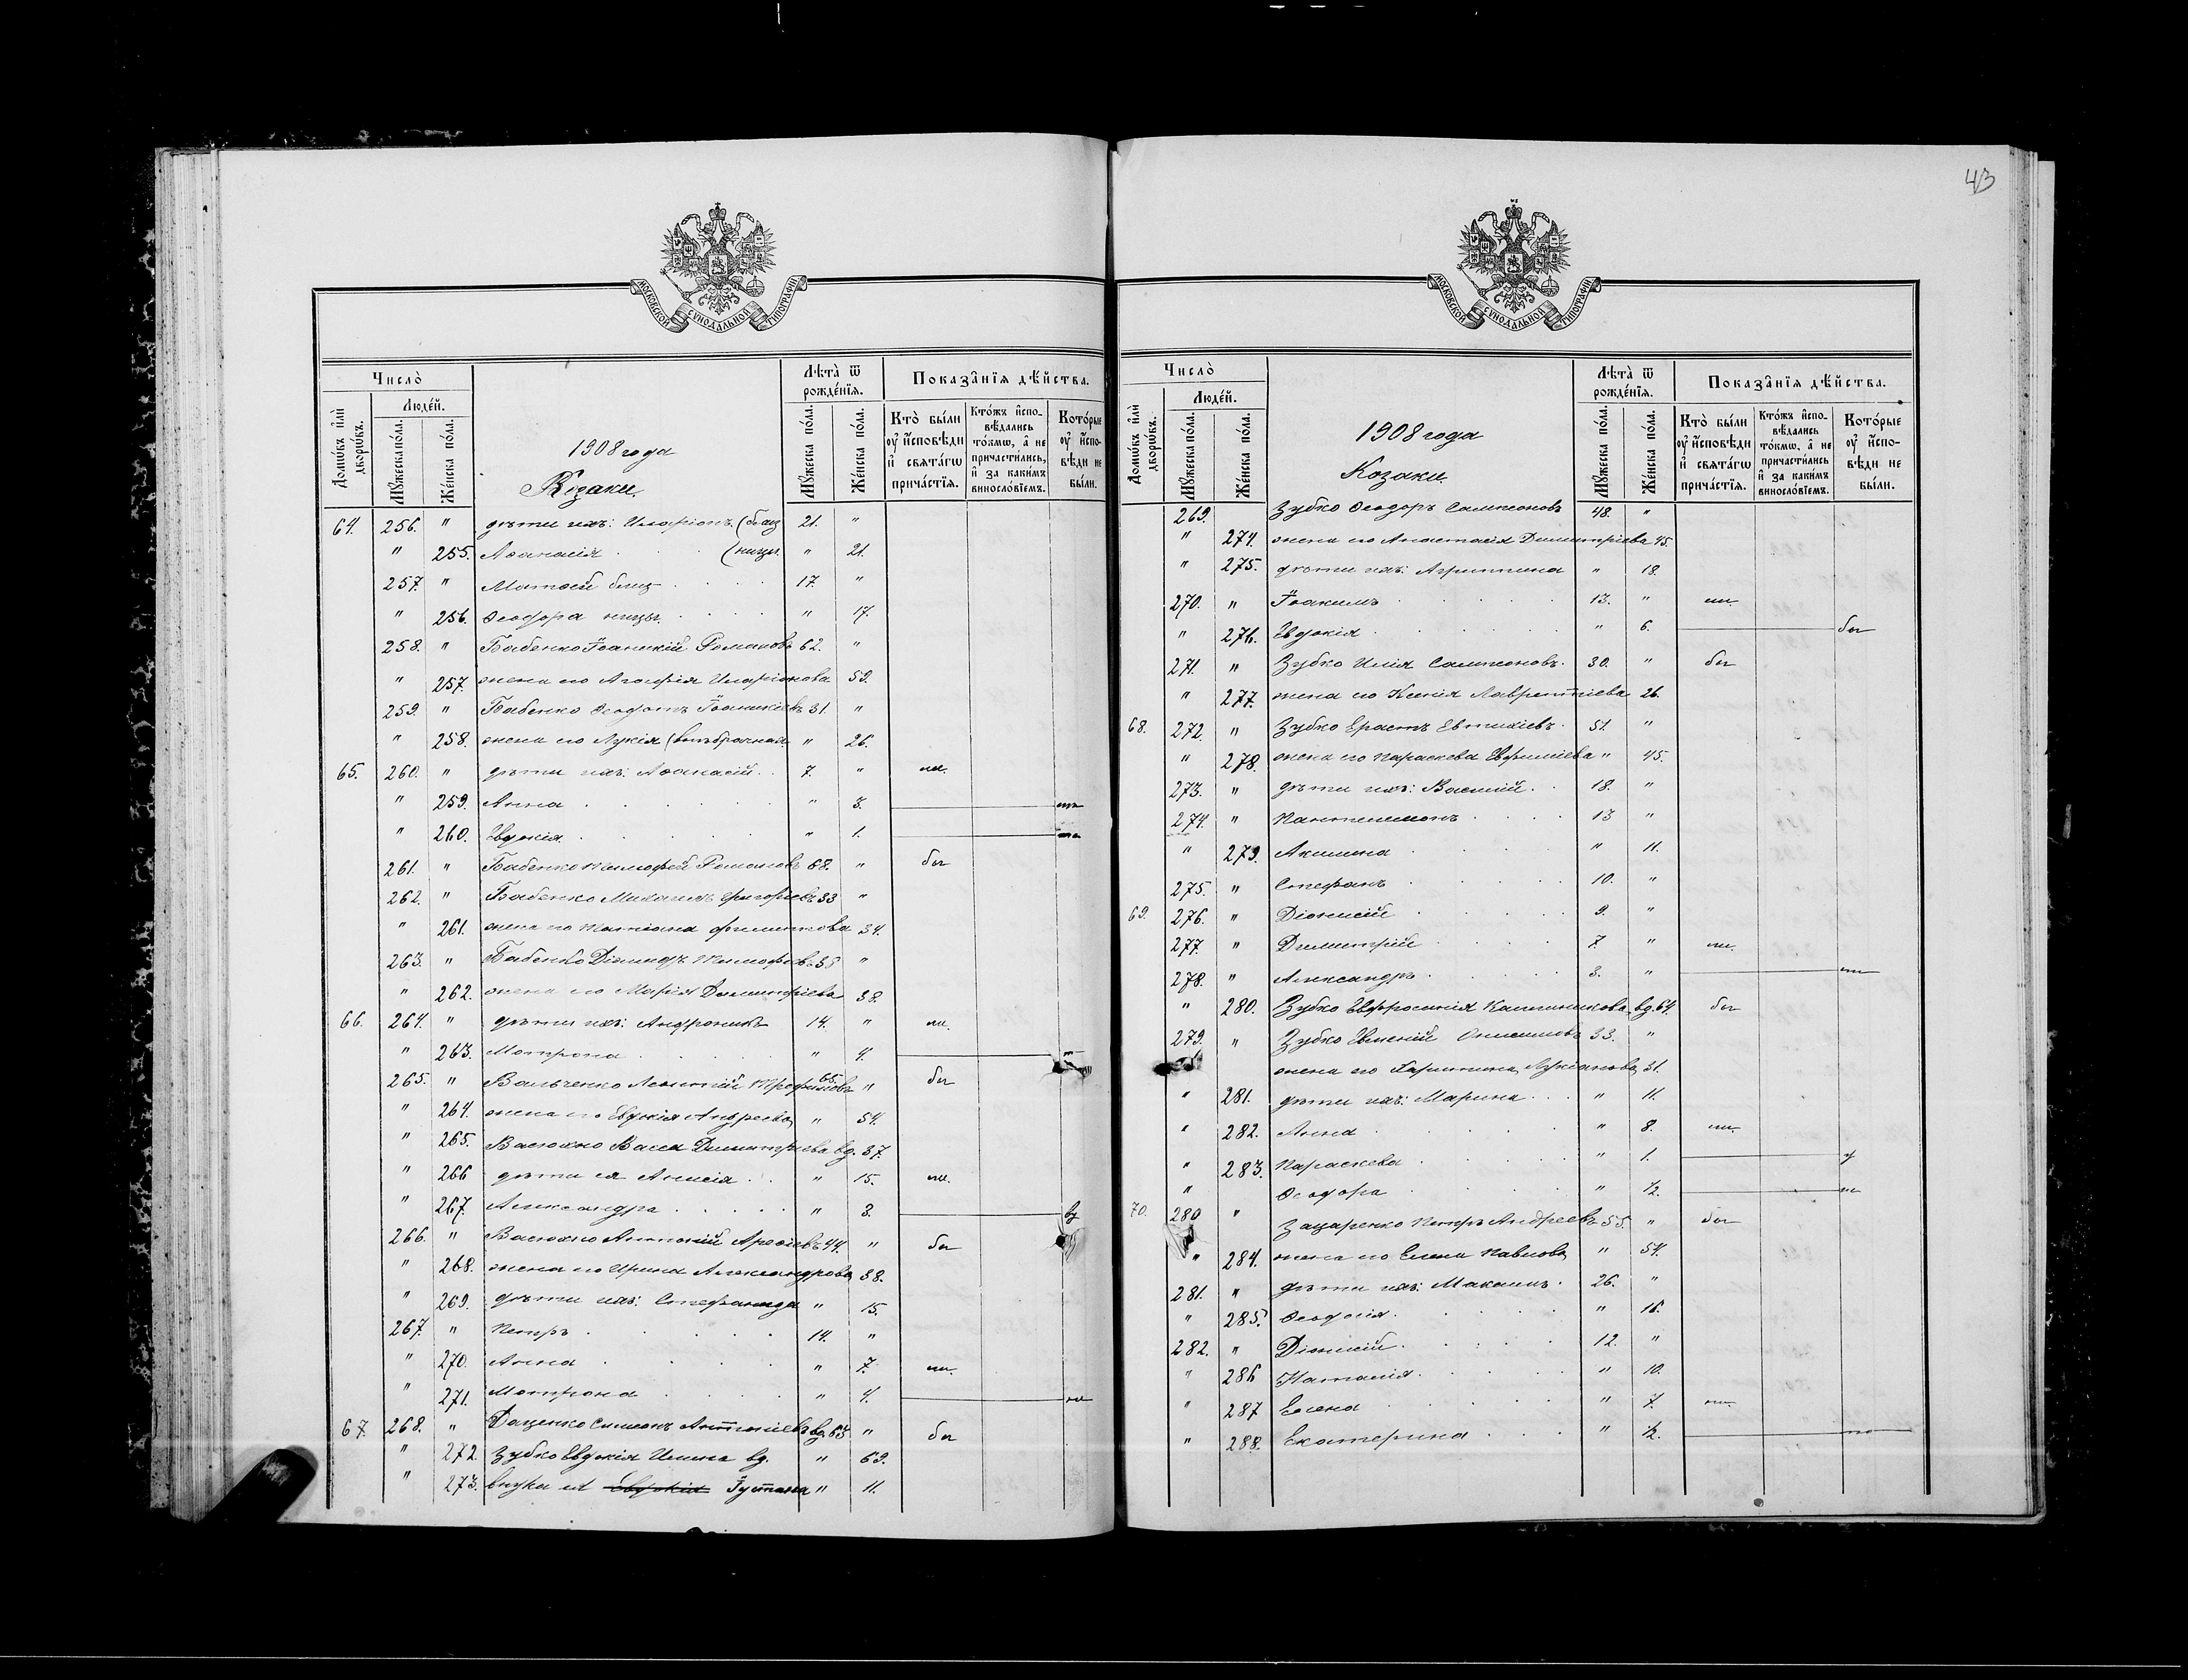 43
МОСКОВСКОЙ СѴНОДАЛЬНОЙ ТИПОГРАФІИ
Число̀
Люде́й.
Домѡ́въ и҆лѝ дворѡ́въ.
Мꙋ́жеска по́ла.
Же́нска по́ла.
1908 года
Козаки.
Лѣ́та ѿ рожде́нїѧ.
Мꙋ́жеска по́ла.
Же́нска по́ла.
Показа̑нїѧ дѣ́йства.
Кто̀ бы́ли ᲂу҆ и҆сповѣди и҆ свѧта́гѡ прича́стїѧ.
Кто́жъ и҆спо-вѣдались то́кмѡ, а҆ не причасти́лись, и҆ за каки́мъ виносло́вїемъ.
Кото́рые ᲂу҆ и҆спо-вѣди не бы́ли.
64. 256. " дѣти ихъ: Иларіонъ (близ 21. "
" 255. Аѳанасія (ницы. " 21.
257. " Матѳей близ 17. "
" 256. Ѳеодора ницы. " 17.
258. " Бабенко Іоанникій Романовъ 62. "
" 257. жена его Агафія Иларіонова 59.
259. " Бабенко Ѳеодотъ Іоанникіевъ 31. "
" 258. жена его Лукія " 26.
65. 260. " дѣти ихъ: Аѳанасій 7. "
" 259. Анна " 3.
" 260. Евдокія " 1.
261. " Бабенко Тимофей Романовъ 68. " бы
262. " Бабенко Михаилъ Григоріевъ 33 "
" 261. жена его Татіана Филиппова 34.
263. " Бабенко Діомидъ Тимофеев. 35 "
" 262. жена его Марія Димитріева 38.
66. 264. " дѣти ихъ: Андроникъ 14. "
" 263. Матрона " 4.
265. " Вальченко Леонтій Трофимовъ 65. " бы
" 264. жена его Евдокія Андреева " 54.
" 265. Васюхно Васса Димитріева вд. 37.
" 266 дѣти ея Анисія " 15.
" 267. Александра " 3.
266. " Васюхно Антоній Арсеніевъ 44. " бы
" 268. жена его Ирина Александрова 38.
" 269. дѣти ихъ: Стефанида " 15.
267. " Петръ 14. "
" 270. Анна " 7.
" 271. Матрона " 4.
67. 268. " Даценко Симеонъ вд. 63 " бы
" 272. Зубко Евдокія Ильина вд. " 69.
" 273. внука ея Евдокія Іустина " 11.
МОСКОВСКОЙ СѴНОДАЛЬНОЙ ТИПОГРАФІИ
Число̀
Люде́й.
Домѡ́въ и҆лѝ дворѡ́въ.
Мꙋ́жеска по́ла.
Же́нска по́ла.
1908 года
Козаки.
Лѣ́та ѿ рожде́нїѧ.
Мꙋ́жеска по́ла.
Же́нска по́ла.
Показа̑нїѧ дѣ́йства.
Кто̀ бы́ли ᲂу҆ и҆сповѣди и҆ свѧта́гѡ прича́стїѧ.
Кто́жъ и҆спо-вѣдались то́кмѡ, а҆ не причасти́лись, и҆ за каки́мъ виносло́вїемъ.
Кото́рые ᲂу҆ и҆спо-вѣди не бы́ли.
269. Зубко Ѳеодоръ Сампсоновъ 48. "
" 274. жена его Анастасія Димитріева 45.
" 275. дѣти ихъ: Агриппина " 18.
270. " Іоакимъ 13. "
" 276. Евдокія " 6. бы
271. " Зубко Илія Сампсоновъ 30. " бы
" 277. жена его Ксенія Лаврентіева 26.
68. 272. " Зубко Ерастъ Евтихіевъ 51. "
" 278. жена его Параскева " 45.
273. " дѣти ихъ: Василій 18. "
274. " Пантелеимонъ 13 "
" 279. Акилина " 11.
275. " Стефанъ 10. "
69. 276. " Діонисій 9. "
277. " Димитрій 7. "
278. " Александръ 3. "
" 280. Зубко Евфросинія Каллиникова вд. 64. бы
279. " Зубко Евмений Онисимовъ 33. "
жена его Харитина Лукіанова 31.
" 281. дѣти ихъ: Марина " 11.
" 282. Анна " 8.
" 283. Параскева " 1.
" Ѳеодора " 1/2.
70. 280 " Зацаренко Петръ Андреевъ 55. " бы
" 284. жена его Елена Павлова " 54.
281. " дѣти ихъ: Максимъ 26. "
" 285. Ѳеодосія " 16.
282. " Діонисій 12. "
" 286 Наталія " 10.
" 287 Елена " 7.
" 288. Екатерина " 1/2.